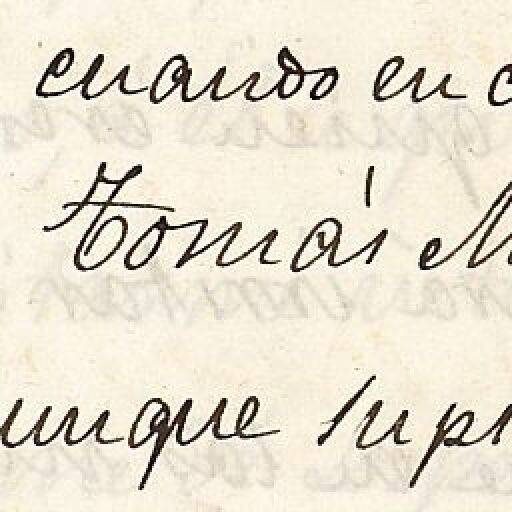 cuando en c
Tomás M
unque supr